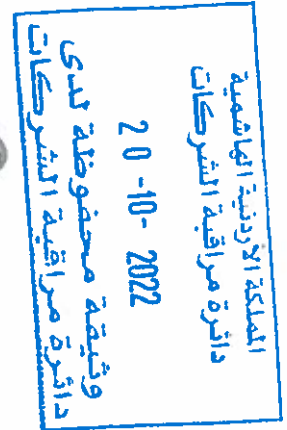 المملكة الاردنية الهاشمية
دائرة مراقبة الشركات
20 -10- 2022
وثيقة محفوظة لدى
دائرة مراقبة الشركات